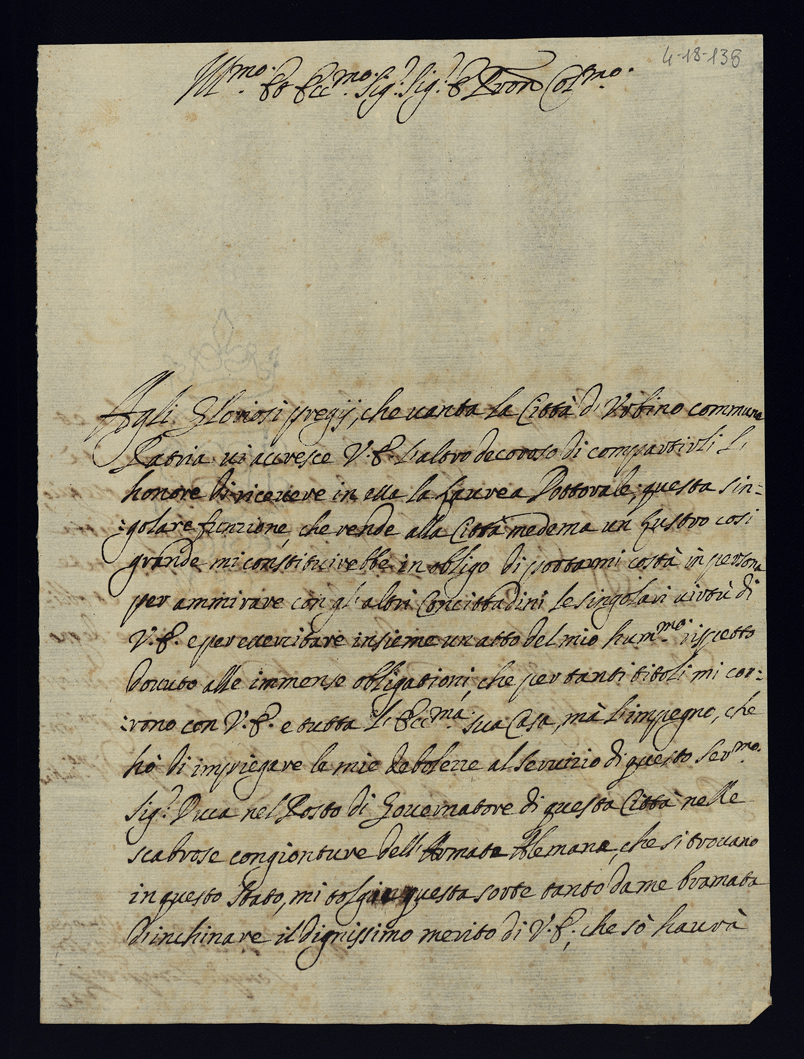 4-18-138
Ill.mo et Ecc.mo Sig.r Sig.r e Pron Col.mo
Agli Gloriosi pregij, che uanta la Città d'Urbino commune
Patria ui accresce V.E. l'altro decoroso di compartirli l'
honore di riceuere in essa la Laurea Dottorale; questa sin=
=golare funzione, che rende alla Città medema un Lustro così
grande mi constituirebbe in obligo di portarmi costà in persona
per ammirare con gl'altri Concittadini le singolari uirtù di
V.E. e per esercitare insieme un atto del mio hum.mo rispetto
douuto alle immense obligationi, che per tanti titoli mi cor=
=rono con V.E. e tutta l'Ecc.ma sua Casa, mà l'impegno, che
hò di impiegare le mie debolezze al seruizio di questo Ser.mo
Sig.r Duca nel Posto di Gouernatore di questa Città nelle
scabrose congionture dell'Armata Alemana, che si trouano
in questo Stato, mi questa sorte tanto da me bramata
d'inchinare il dignissimo merito di V.E., che sò haurà